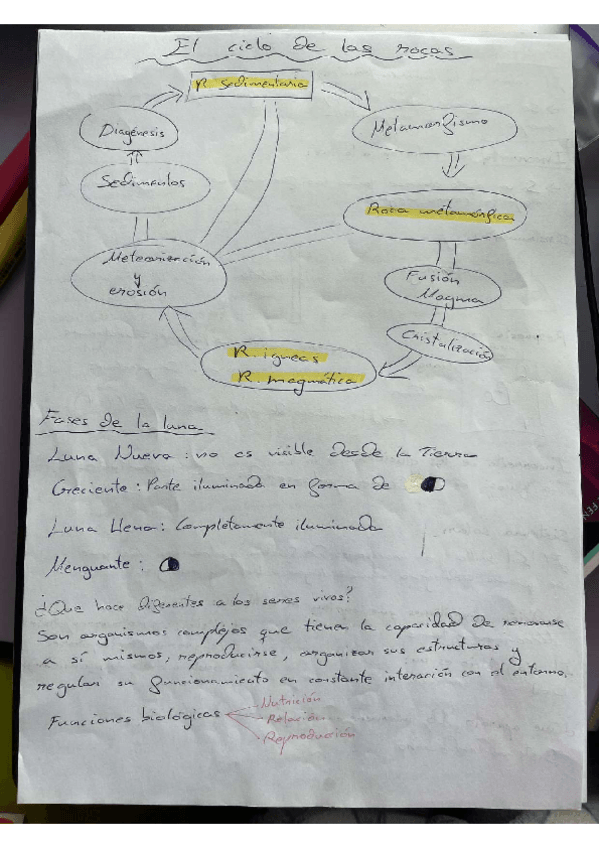 El ciclo de las rocas
R. Sedimentaria
Diagénesis
Metamorfismo
Sedimentos
Roca metamórfica
Meteorización
y
erosión
Fusión
Magma
Cristalización
R. igneas
R. magmática
Fases de la luna
Luna Nueva: no es visible desde la Tierra
Creciente: Parte iluminada en forma de
Luna Llena: Completamente iluminada
Menguante:
¿Que hace diferentes a los seres vivos?
Son organismos complejos que tienen la capacidad de renovarse
a sí mismos, reproducirse, organizar sus estructuras y
regular su funcionamiento en constante interación con el entorno.
Funciones biológicas
Nutrición
Relación
Reproducción